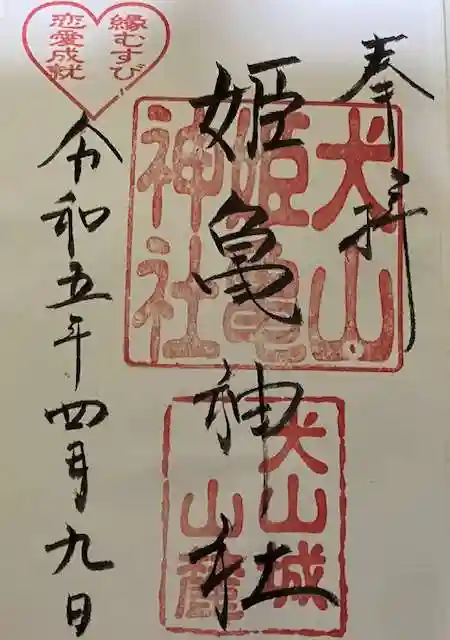 奉拝
犬山
姫亀
神社
姫亀神社
犬山城
山麓
令和五年四月九日
縁むすび
恋愛成就